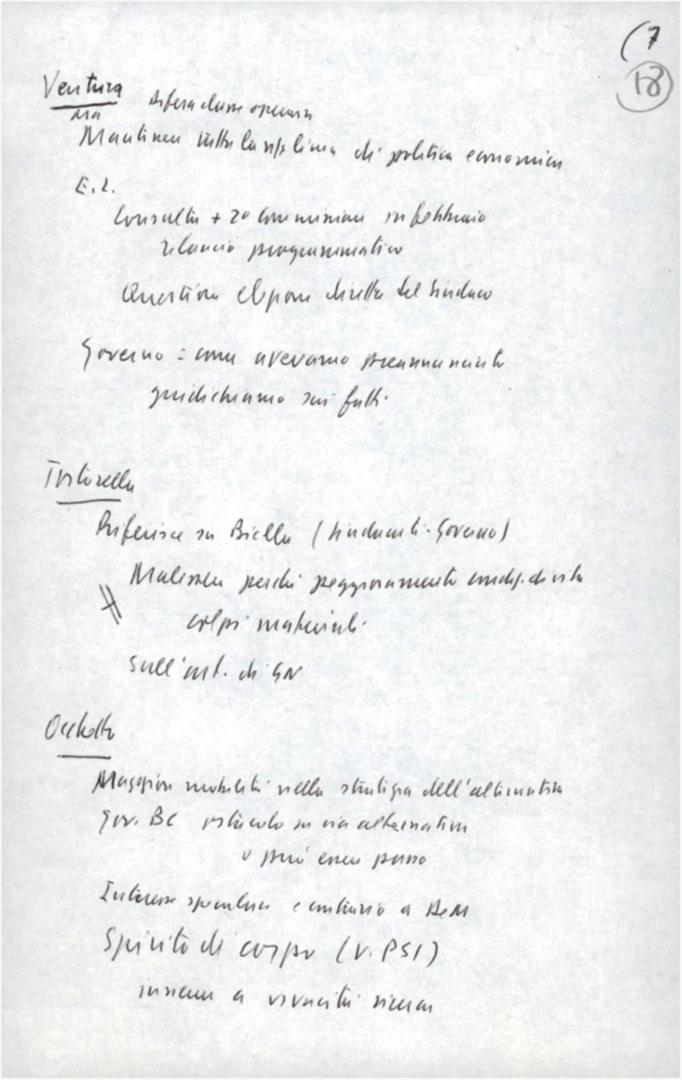 (7
18
Ventura difesa classe operaia
ma
Mantenere linea di politica economica
E.L.
Consulta + 2° commissione in febbraio
rilancio programmatico
Questione elezione diretta del sindaco
Governo = come avevamo preannunciato
giudichiamo sui fatti
Tortorella
Riferisce su Biella (sindacati-Governo)
Malessere perché peggioramento condiz. di vita
colpi materiali
Sull'int. di GN
Occhetto
Maggiore mobilità nella strategia dell'alternativa
Gov. BC ostacolo su via alternativa
o può essere passo
Interesse speculare e contrario a DeM
Spirito di corpo (v. PSI)
insieme a vivacità